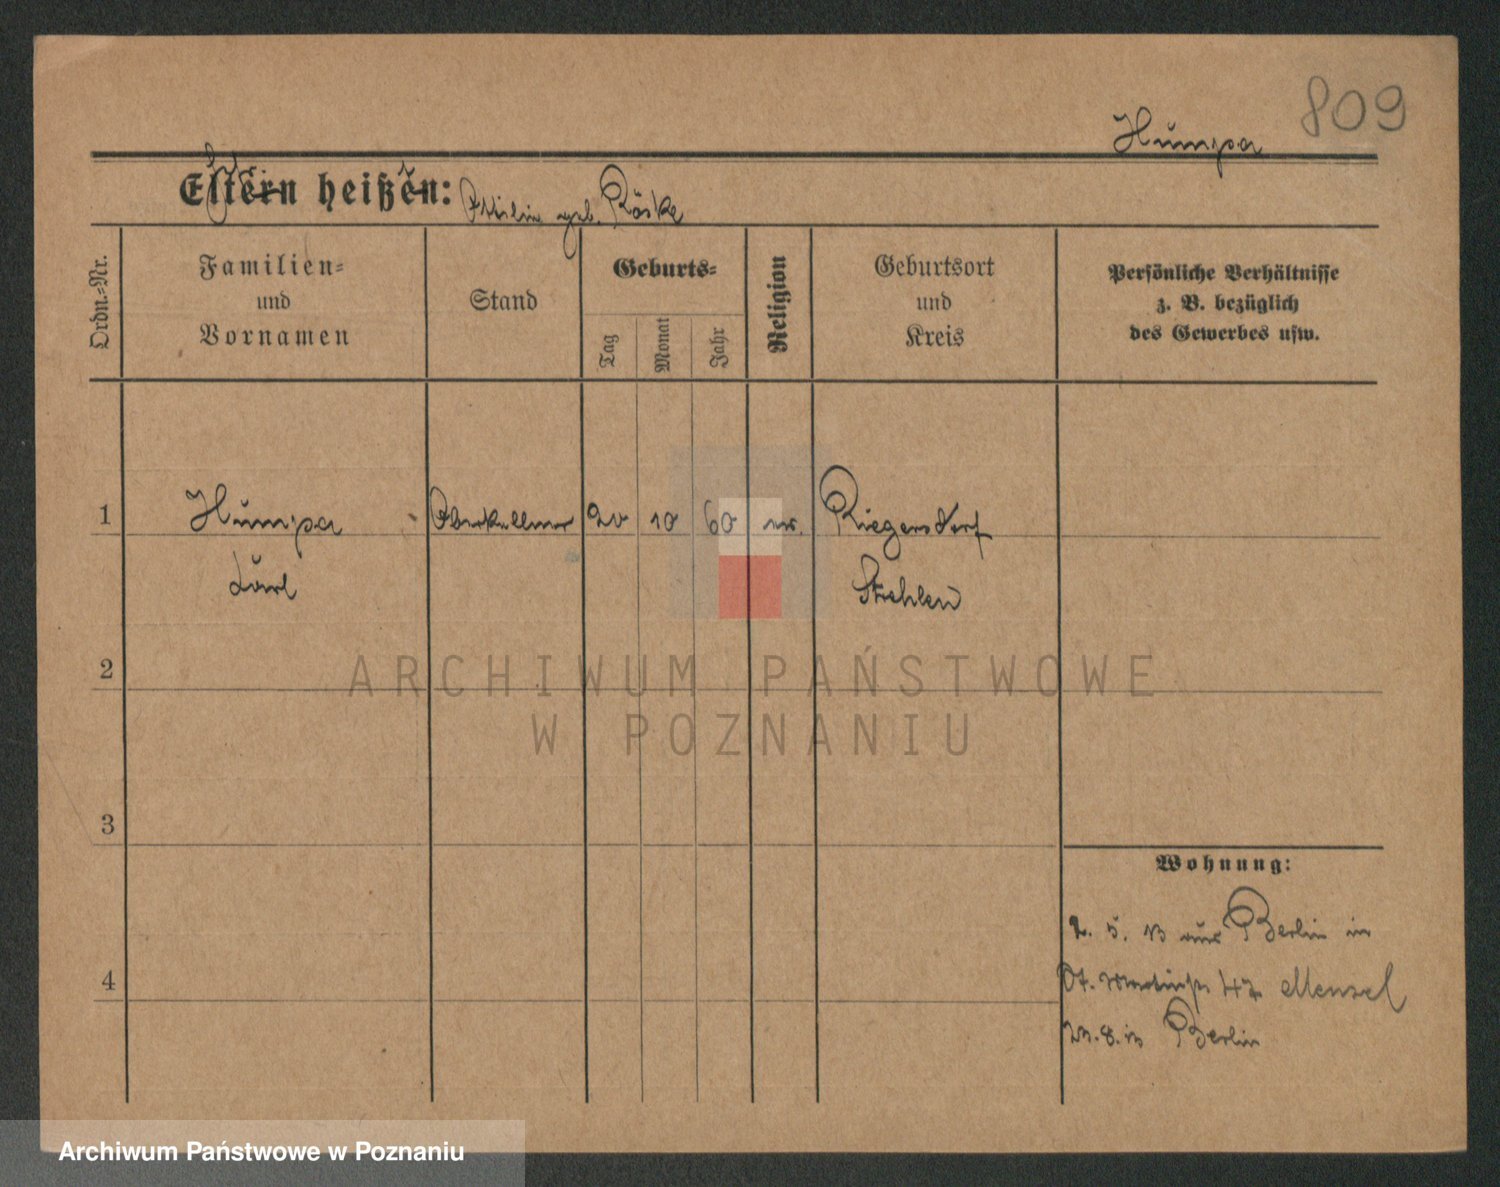 809
Humpa
Eltern heißen: Ottilie geb. Röske
Ordn.-Nr.
Familien-
und
Vornamen
Stand
Geburts-
Tag
Monat
Jahr
Religion
Geburtsort
und
Kreis
Persönliche Verhältnisse
z. B. bezüglich
des Gewerbes usw.
1 Humpa Oberkellner 20 10 60 ev. Riegersdorf
Karl Strehlen
2
3
4
Wohnung:
2. 5. 13 aus Berlin in
St. Martinstr 47 Menzel
8. 13 Berlin
ARCHIWUM PAŃSTWOWE
W POZNANIU
Archiwum Państwowe w Poznaniu